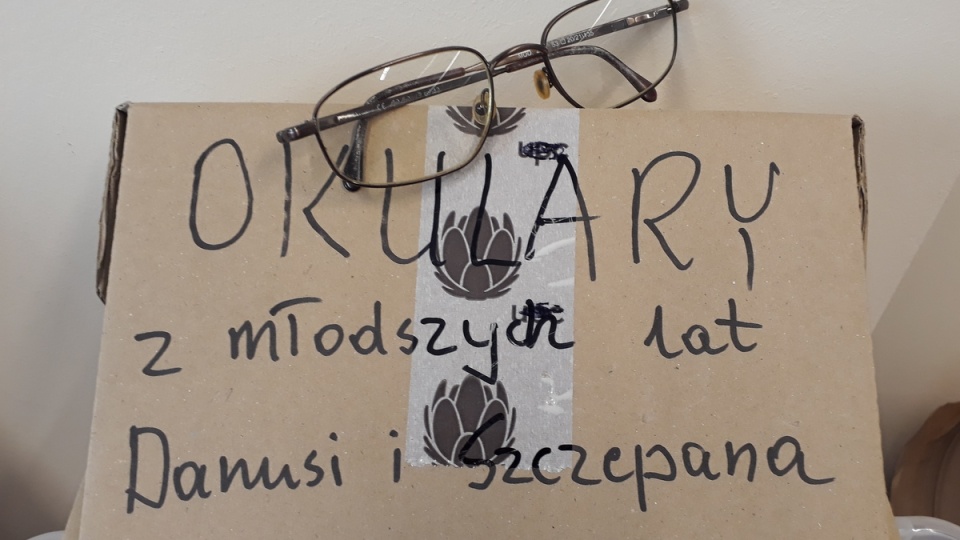 OKULARY
z młodszych lat
Danusi i Szczepana